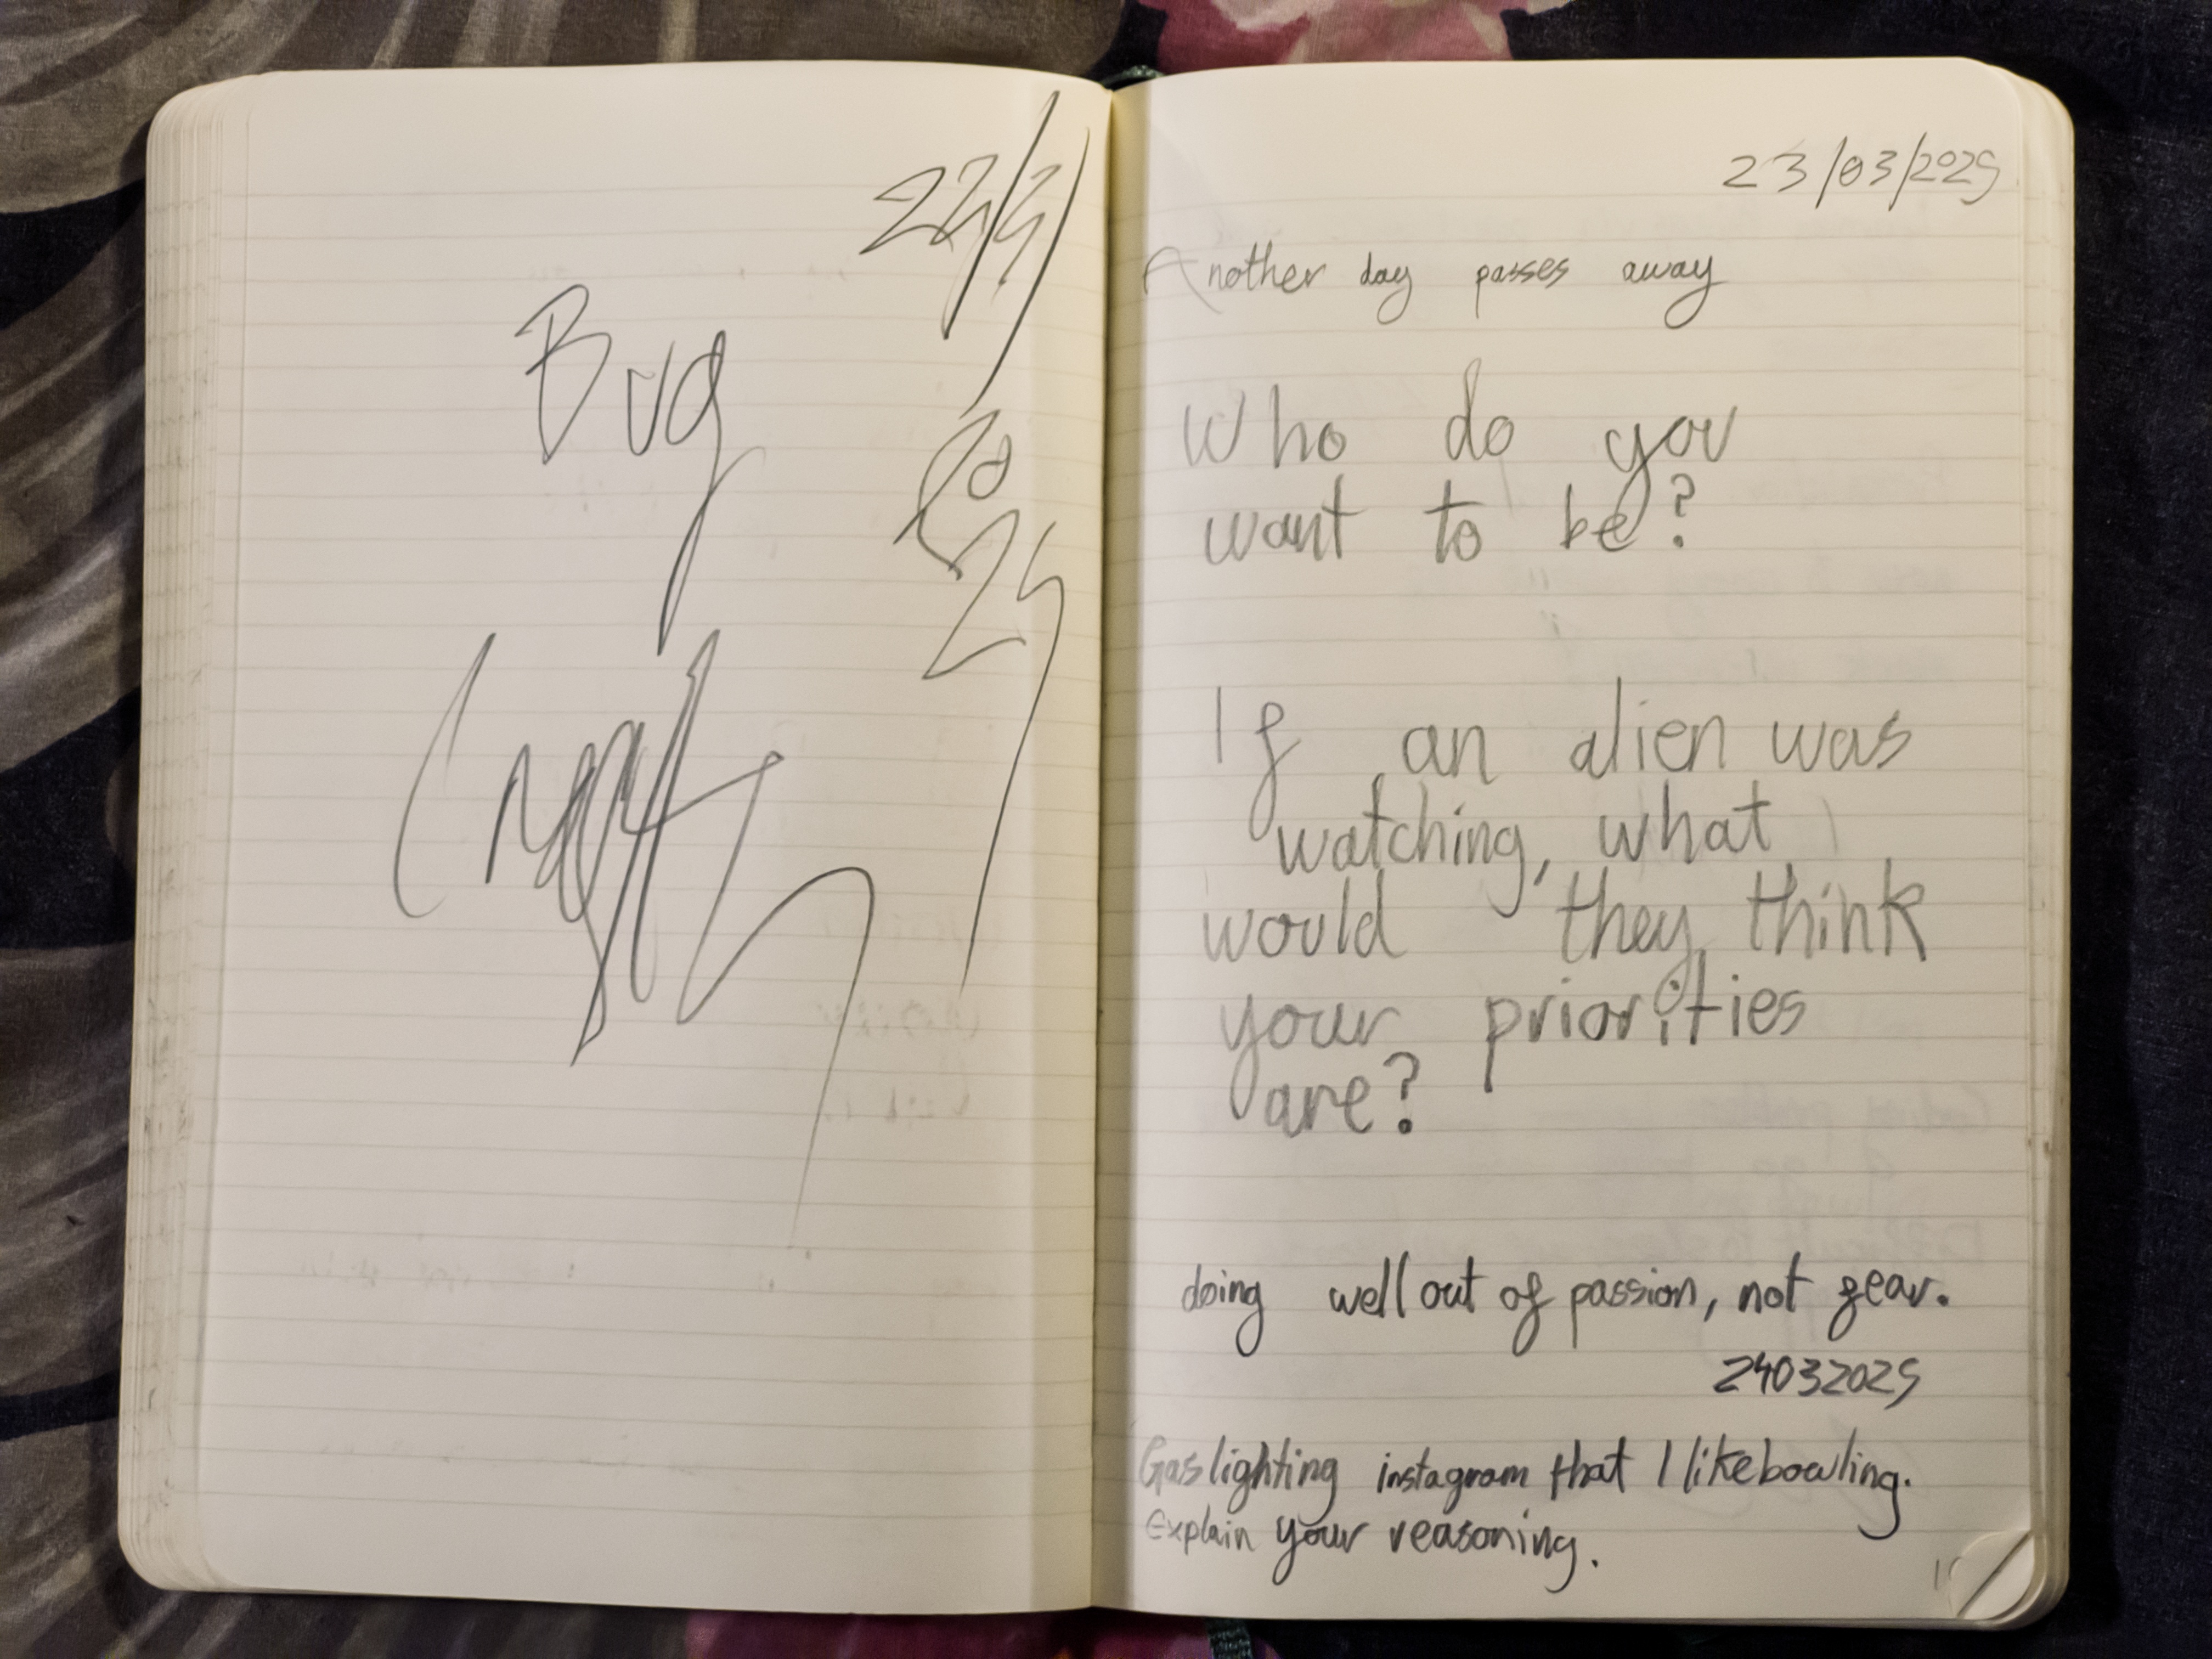 22/3/
2025
Bug
23/03/2025
Another day passes away
Who do you
want to be?
If an alien was
watching, what
would they think
your priorities
are?
doing well out of passion, not fear.
24032025
Gaslighting instagram that I like bowling.
Explain your reasoning.